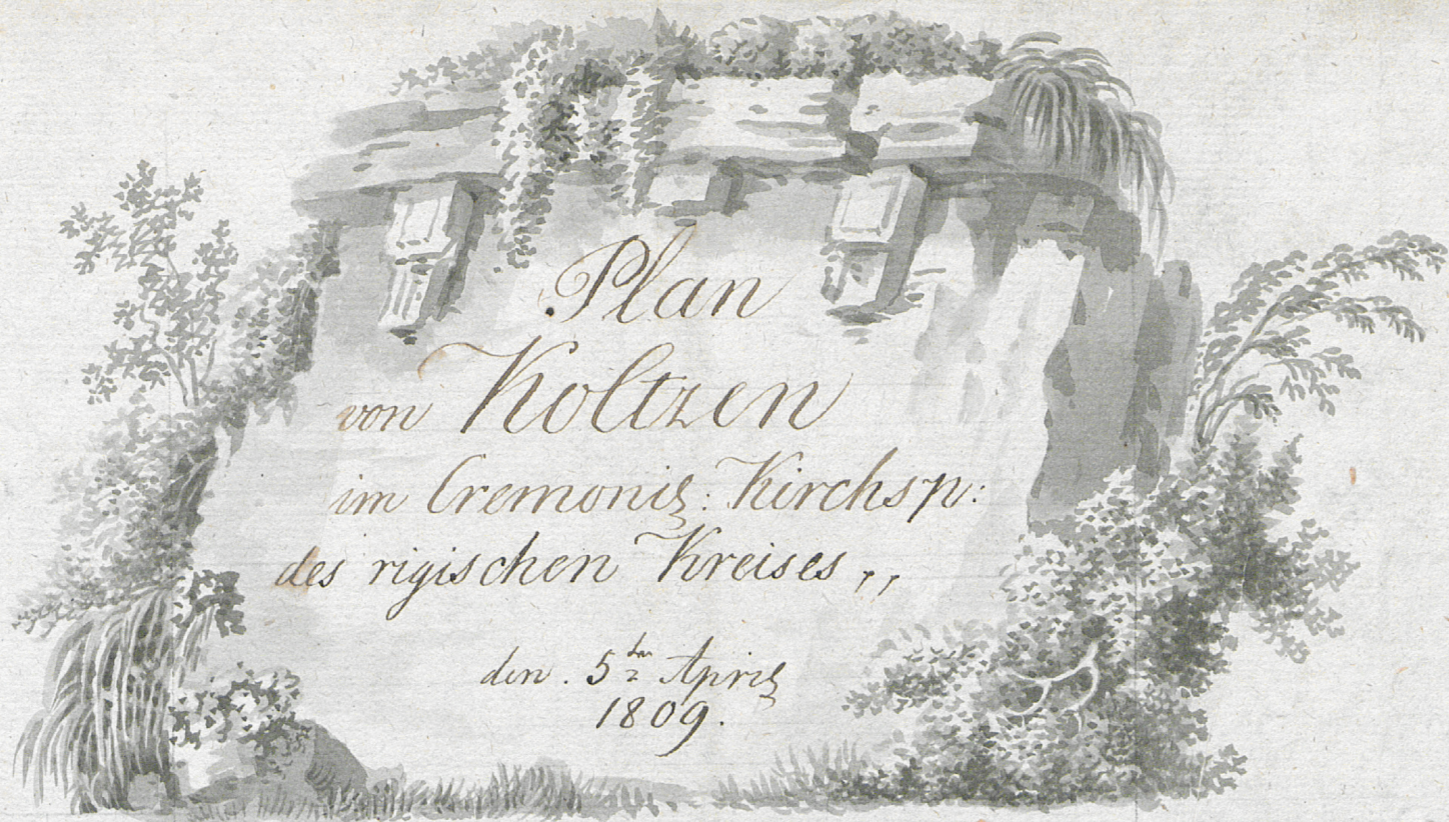 Plan
von Koltzen
im Cremonis: Kirchsp:
des rigischen Kreises,,
den. 5ten April
1809.